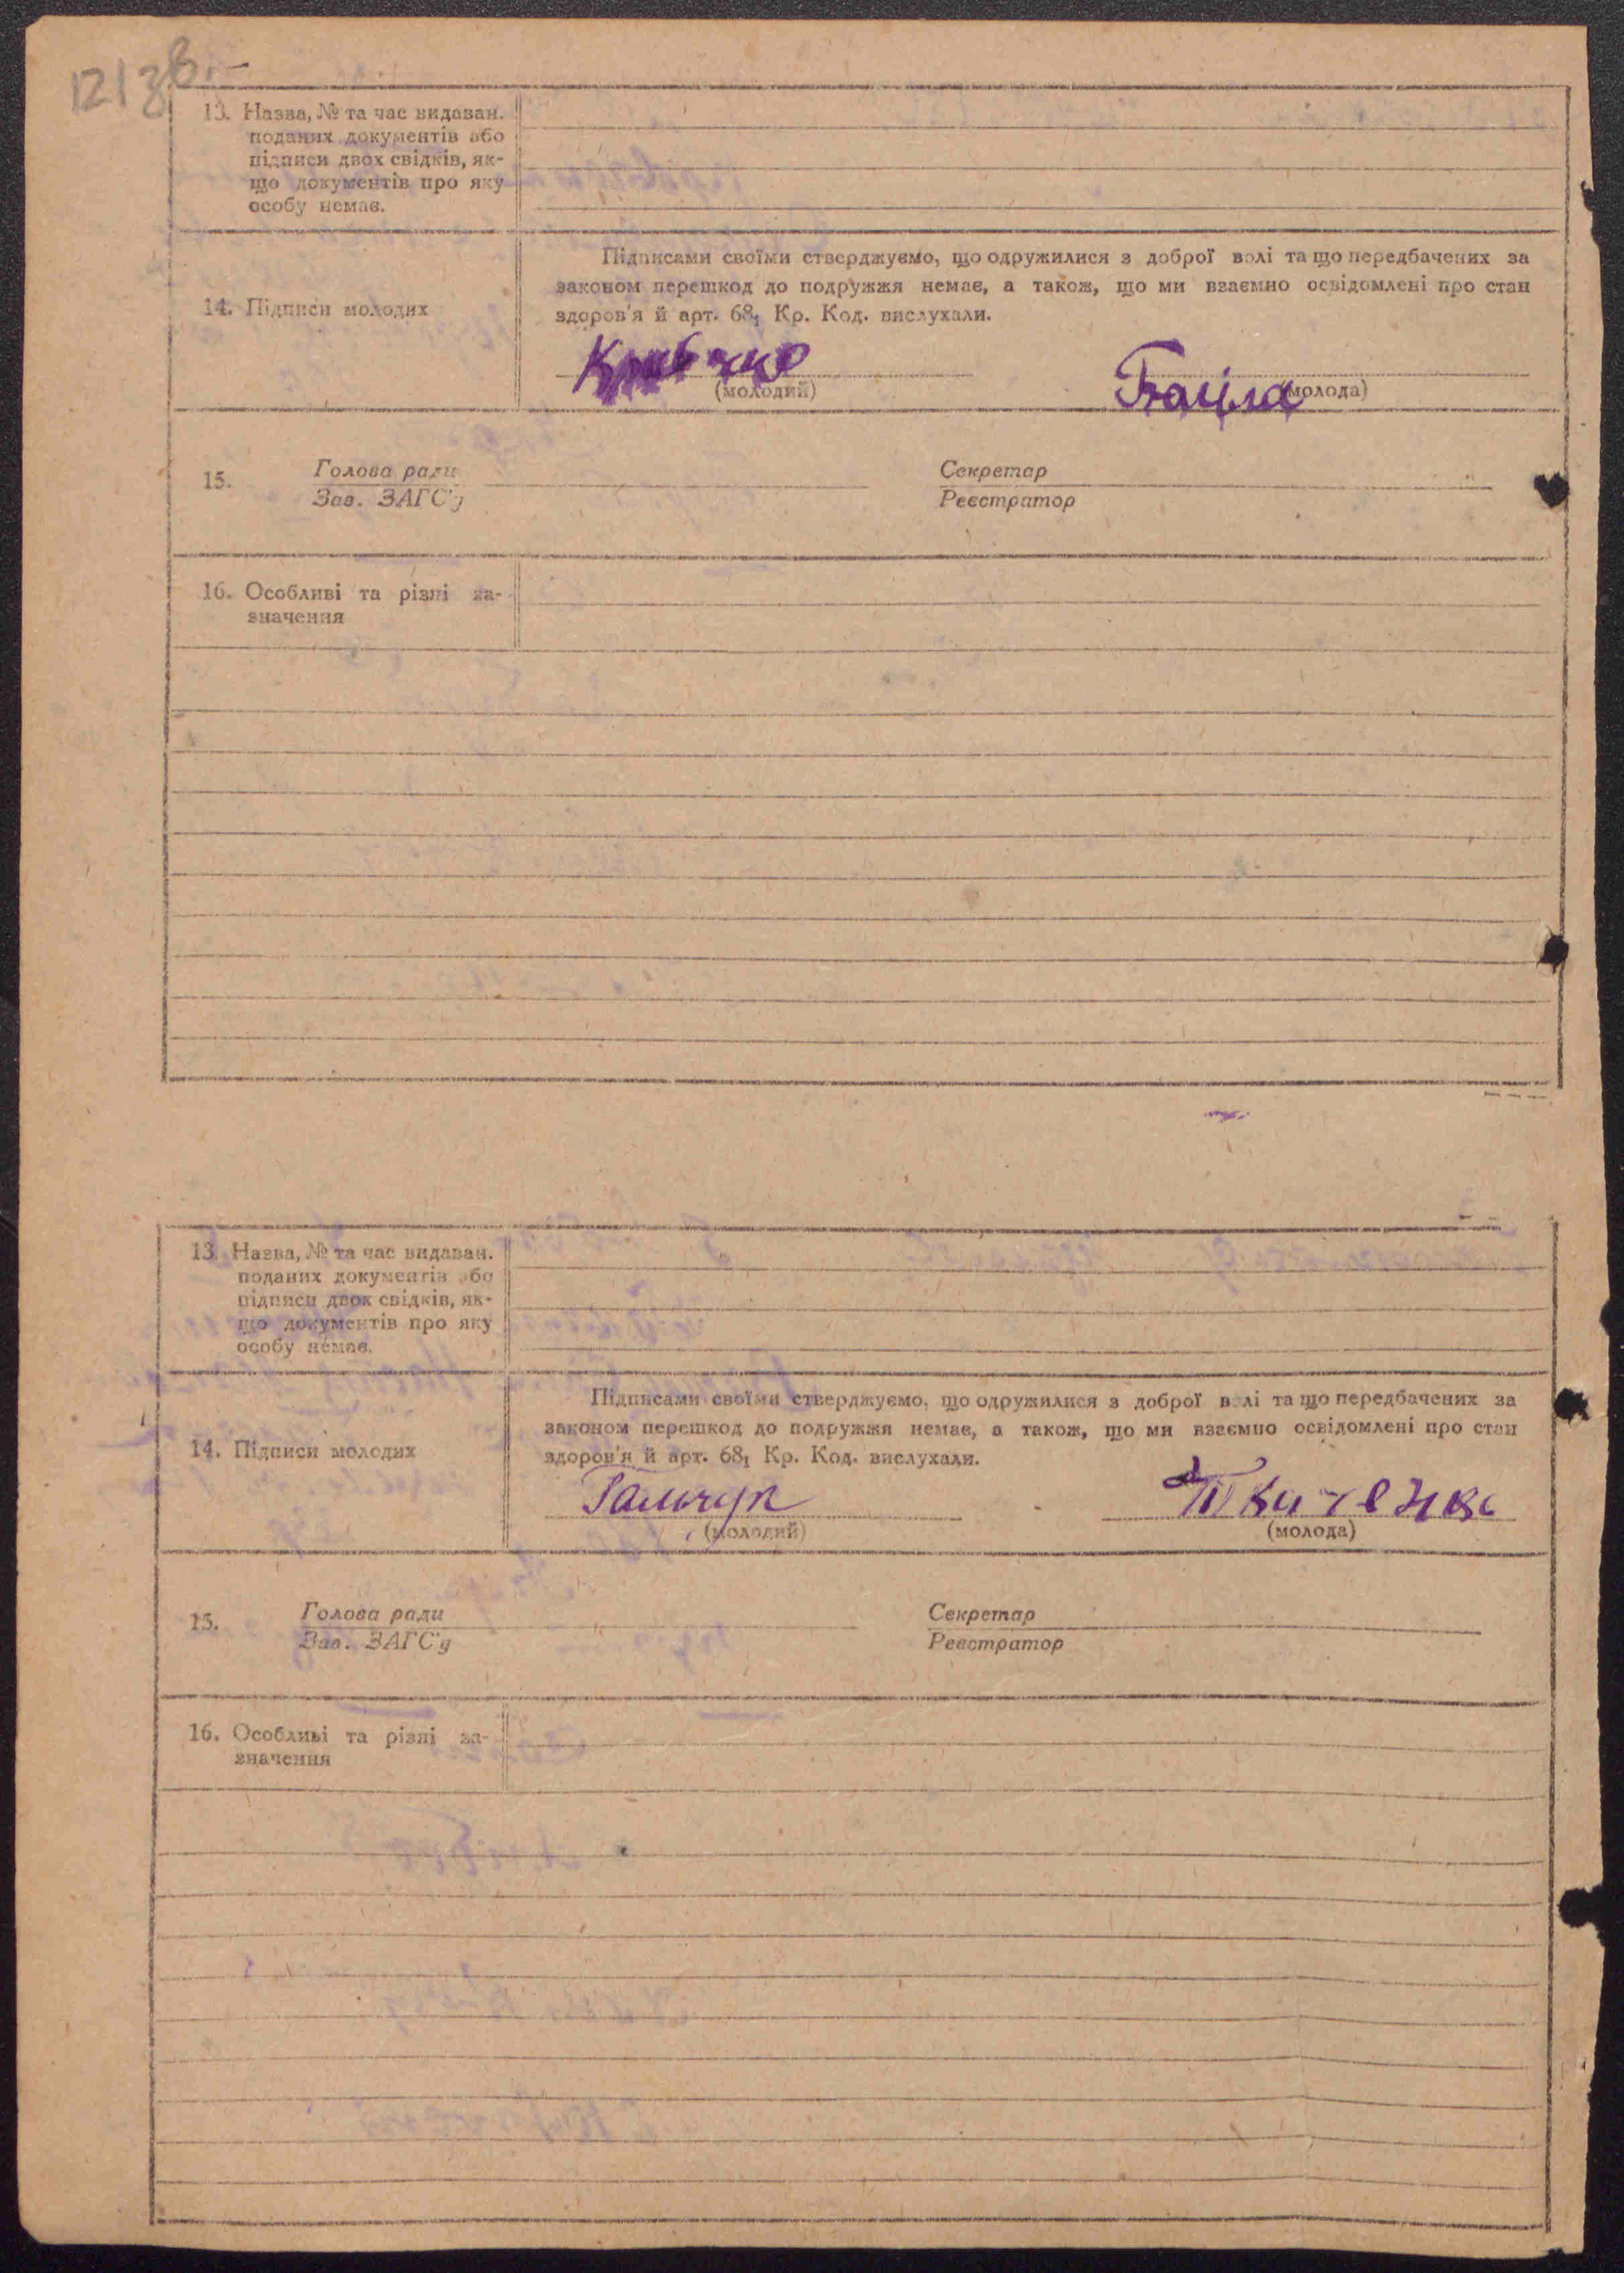 13. Назва, № та час видаван.
поданих документів або
підписи двох свідків, як-
що документів про яку
особу немає.
Підписами своїми стверджуємо, що одружилися з доброї волі та що передбачених за
законом перешкод до подружжя немає, а також, що ми взаємно освідомлені про стан
14. Підписи молодих
здоров'я й арт. 68₁ Кр. Код. вислухали.
(молодий) (молода)
15. Голова ради Секретар
Зав. ЗАГС'у Реєстратор
16. Особливі та різні за-
значення
13. Назва, № та час видаван.
поданих документів або
підписи двох свідків, як-
що документів про яку
особу немає.
Підписами своїми стверджуємо, що одружилися з доброї волі та що передбачених за
законом перешкод до подружжя немає, а також, що ми взаємно освідомлені про стан
14. Підписи молодих
здоров'я й арт. 68₁ Кр. Код. вислухали.
Гальчук Ткаченко
(молодий) (молода)
15. Голова ради Секретар
Зав. ЗАГС'у Реєстратор
16. Особливі та різні за-
значення